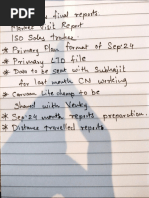 final reports.
Market Visit Report
ISO Sales Tracker
* Primary Plan format of Sep-24
* Primary LTD file
* Data to be sent with Subhajit
for last month CN working
* Canvas lite dump to be
shared with Venky
* Sep-24 month reports preparation.
* Distance travelled reports